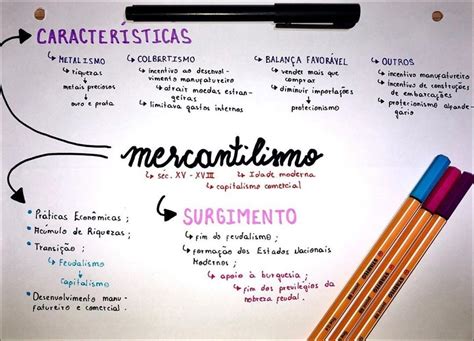 CARACTERÍSTICAS
METALISMO
riquezas
metais preciosos
ouro e prata
COLBERTISMO
incentivo ao desenvol-
vimento manufatureiro
atrair moedas estran-
geiras
limitava gastos internos
BALANÇA FAVORÁVEL
vender mais que
comprar
diminuir importações
protecionismo
OUTROS
incentivo manufatureiro
incentivo de construções
de embarcações
protecionismo alfande-
gário
mercantilismo
séc. XV - XVIII
Idade moderna
capitalismo comercial
Práticas Econômicas;
Acúmulo de Riquezas;
Transição;
Feudalismo
Capitalismo
Desenvolvimento manu-
fatureiro e comercial.
SURGIMENTO
fim do feudalismo;
formação dos Estados Nacionais
Modernos;
apoio à burguesia;
fim dos privilégios da
nobreza feudal.